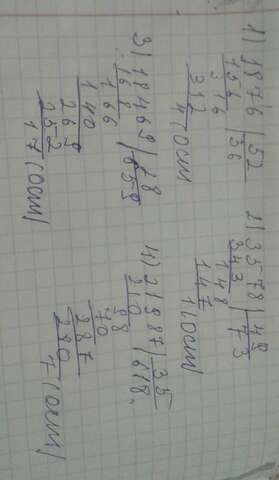 1) 1876 | 52
156 | 36
316
312
4 (ост)
2) 3578 | 49
343 | 73
148
147
1 (ост)
3) 18469 | 28
168 | 659
166
140
269
252
17 (ост)
4) 21987 | 35
210 | 628
98
70
287
280
7 (ост)